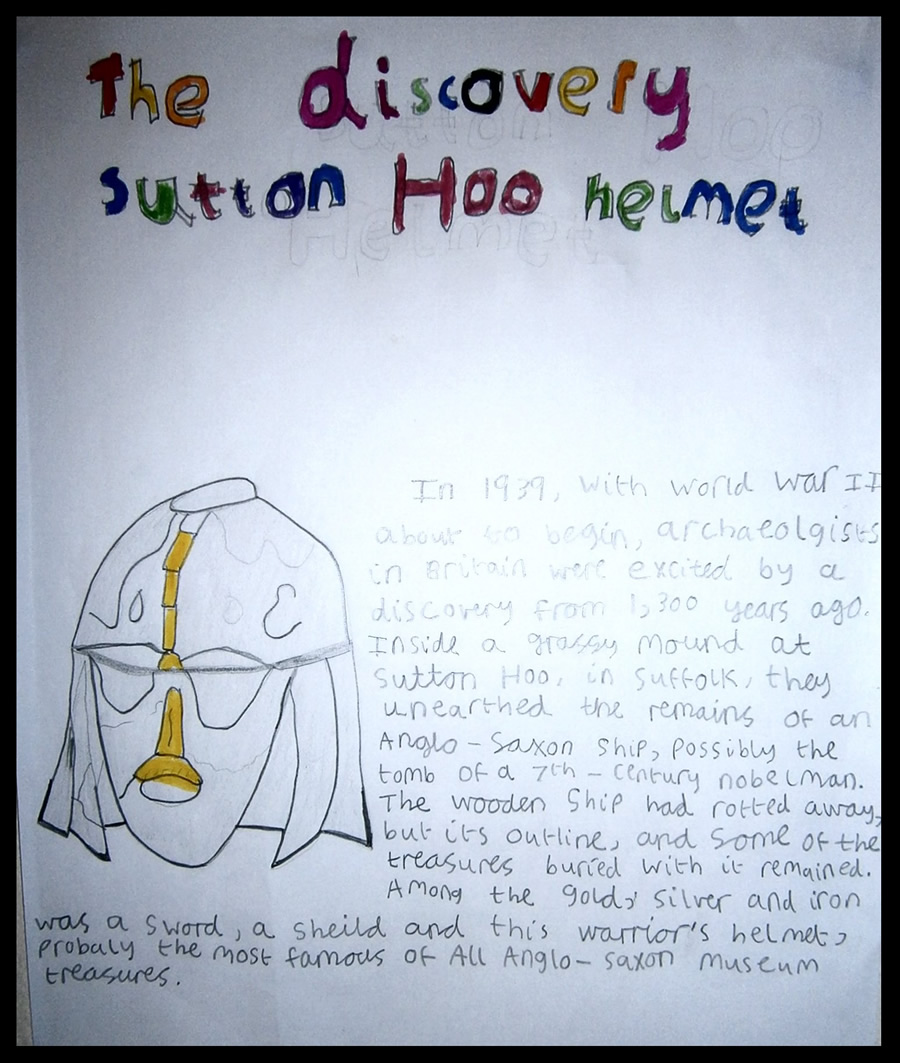 The discovery
sutton Hoo helmet
In 1939, with world war II
about to begin, archaeolgists
in Britain were excited by a
discovery from 1,300 years ago.
Inside a grassy mound at
Sutton Hoo, in Suffolk, they
unearthed the remains of an
Anglo-Saxon Ship, possibly the
tomb of a 7th-century nobelman.
The wooden Ship had rotted away,
but its outline, and some of the
treasures buried with it remained.
Among the gold, silver and iron
was a sword, a sheild and this warrior's helmet,
probaly the most famous of All Anglo-saxon museum
treasures.